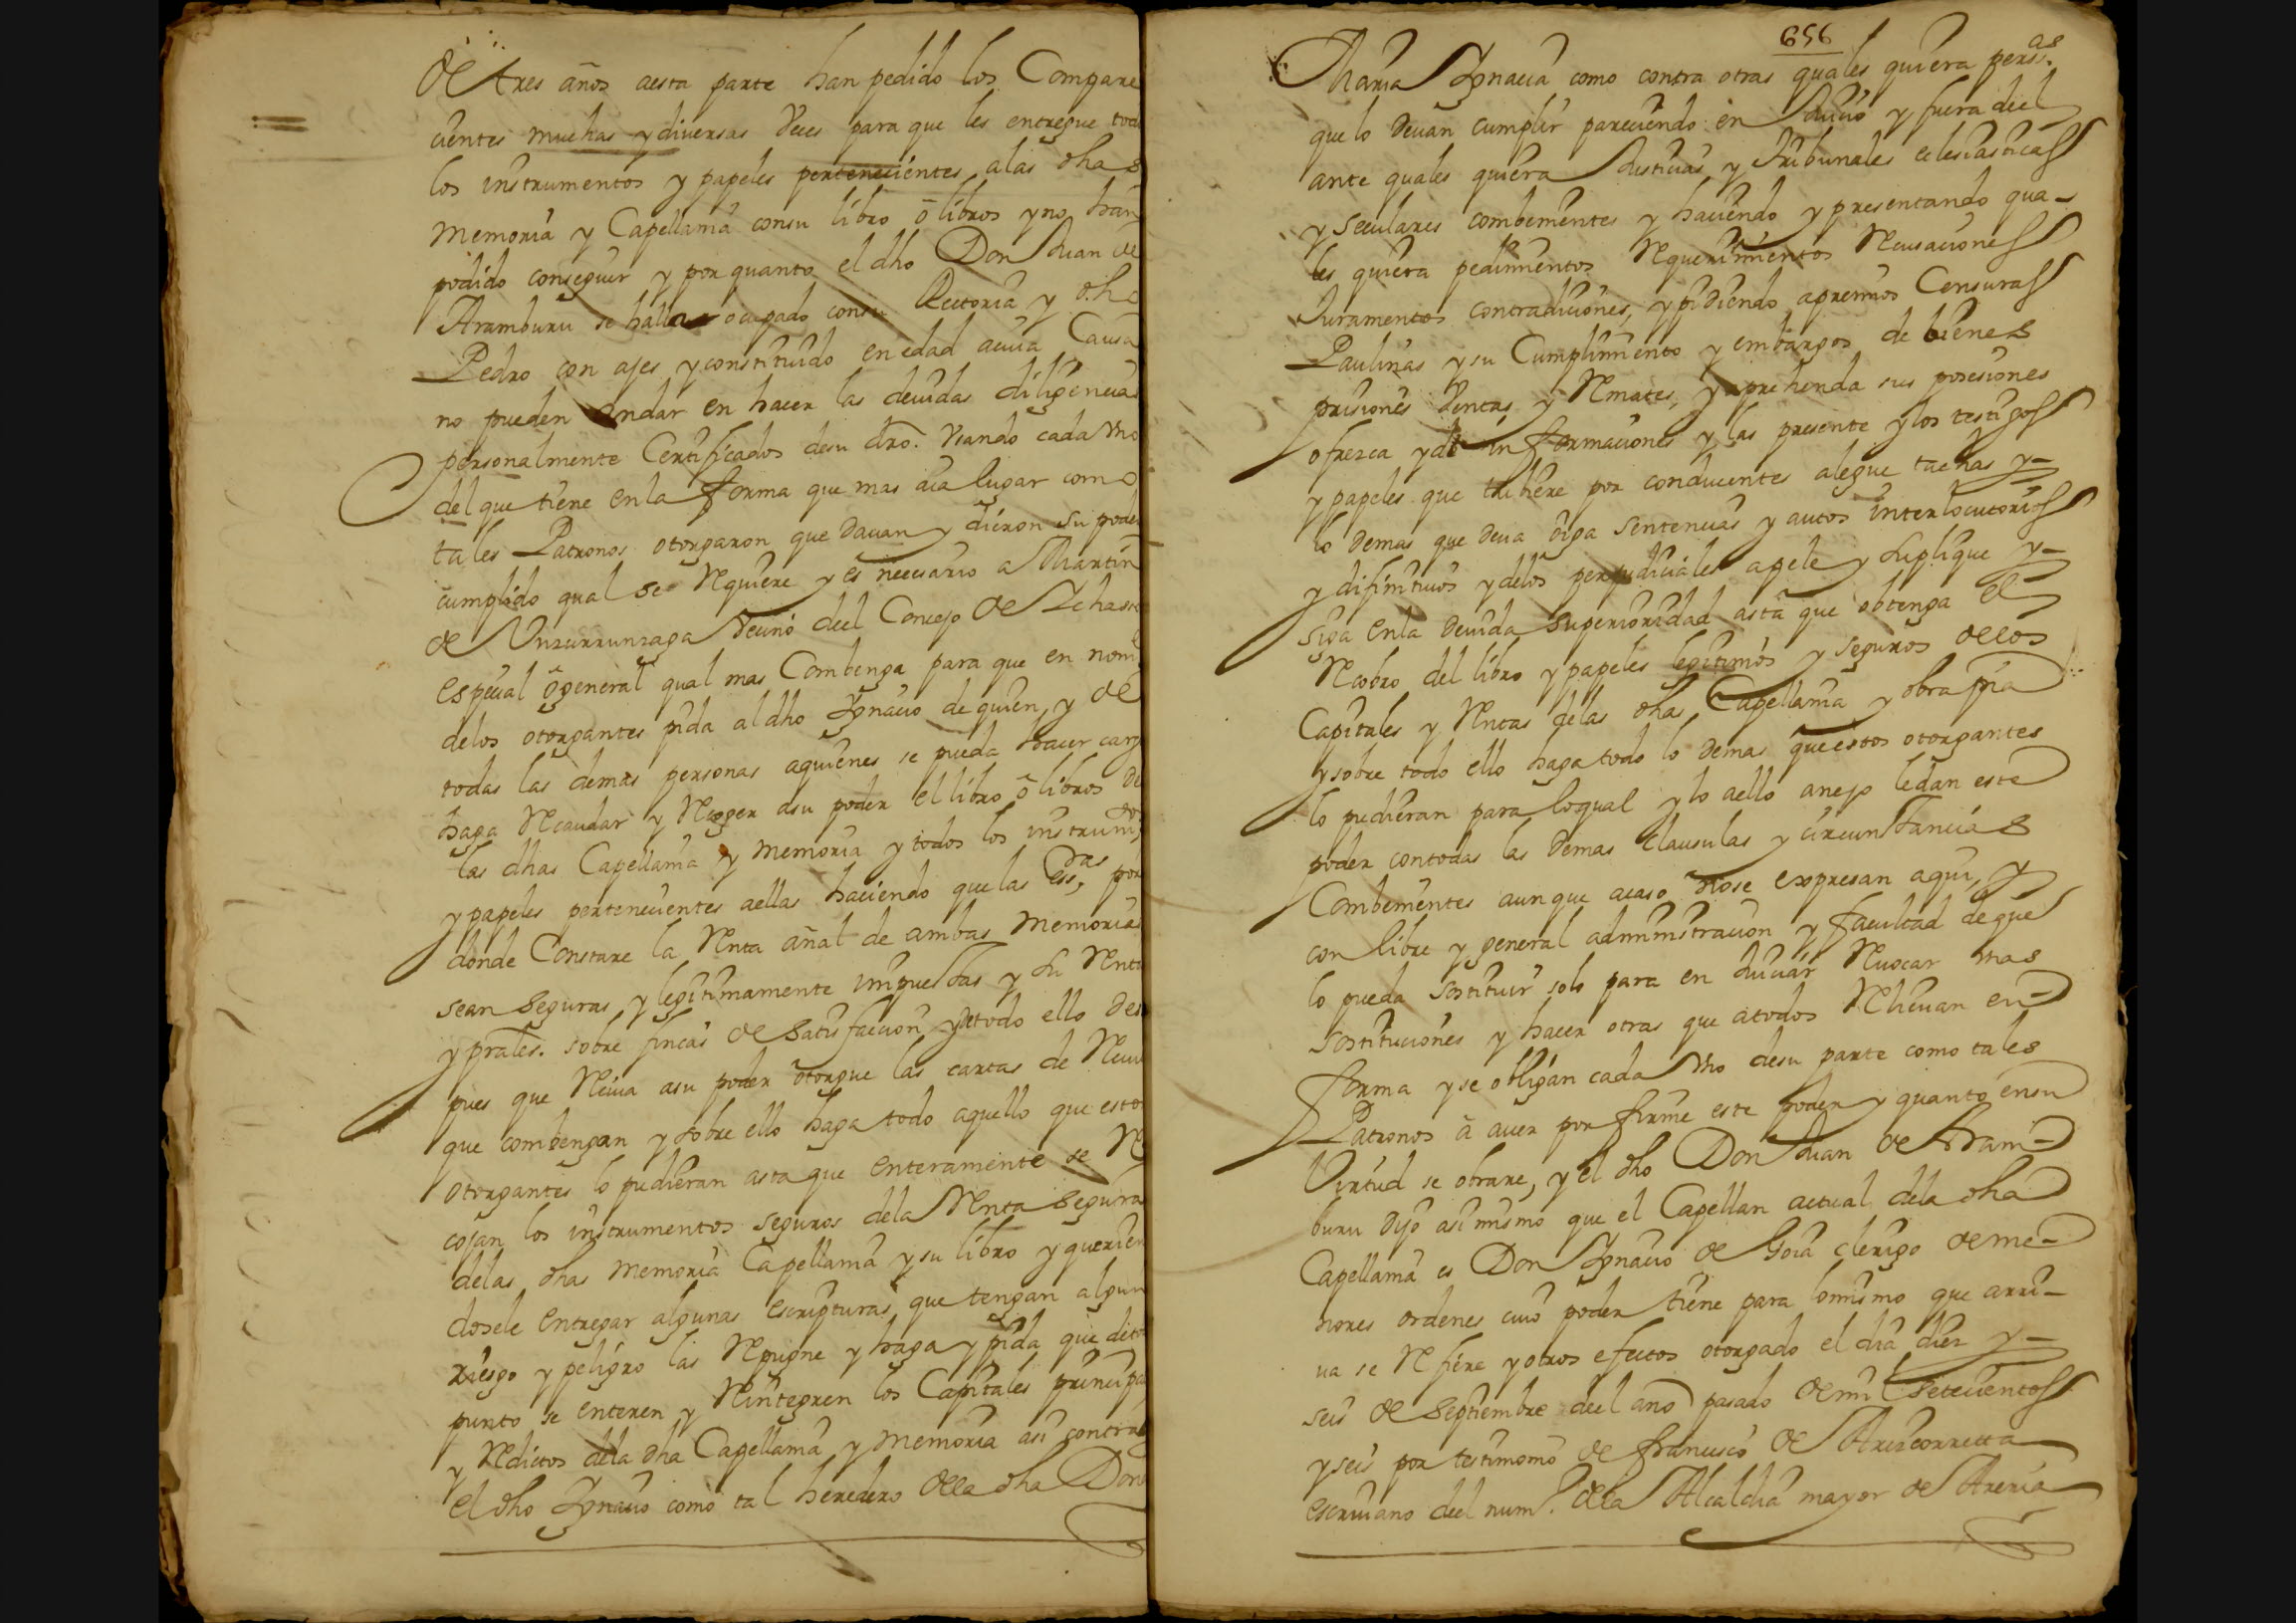 de tres años aesta parte han pedido los Compare
cientes muchas y diversas veces para que les entregue todos
los instrumentos y papeles pertenecientes alas dhas
memoria y Capellania consu libro ō libros yno han
podido conseguir y por quanto el dho Don Juan de
Aramburu se halla ocupado consu Rectoria y dho
Pedro con ajes y constituido en edad acuia Causa
no pueden andar en hacer las devidas diligencias
personalmente Certificados desu dro. Usando cada vno
del que tiene enla forma que mas aia lugar como
tales Patronos otorgaron que davan y dieron su poder
cumplido qual se Requiere y es necesario a Martin
de Unzurrunzaga Vecino deel Concejo de Ichaso
especial ō general qual mas Combenga para que en nom.e
delos otorgantes pida al dho Ignacio de quien, y de
todas las demas personas aquienes se pueda hacer cargo
haga Recaudar y Recoger asu poder el libro ō libros de
las dhas Capellania y memoria y todos los instrum.tos
y papeles pertenecientes aellas haciendo que las ess.ras por
donde Constare la Renta añal de ambas memorias
sean seguras y legitimamente impuestas y su Renta
y prales. sobre fincas de satisfacion y detodo ello des
pues que Reciva asu poder otorgue las cartas de Recivo
que combengan y sobre ello haga todo aquello que estos
otorgantes lo pudieran asta que enteramente se Re
cojan los instrumentos seguros dela Renta segura
delas dhas memoria Capellania y su libro y querien
dosele entregar algunas escripturas que tengan algun
riesgo y peligro las Repugne y haga y pida que deto
punto se enteren y Reintegren los Capitales principales
y Reditos dela dha Capellania y memoria asi contra
el dho Ignacio como tal heredero dela dha Dona
656
Maria Ignacia como contra otras quales quiera pers.as
que lo devan cumplir pareciendo en Juicio y fuera deel
ante quales quiera Justicias y Tribunales eclesiasticas
y seculares combenientes y haciendo y presentando qua-
les quiera pedimentos Requerimientos Recusaciones
Juramentos contradiciones, y pidiendo apremios Censuras
Paulinas y su Cumplimiento y embargos de bienes
prisiones Ventas y Remates, y aprehenda sus posesiones
ofrezca y dé informaciones y las presente y los testigos
y papeles que tubiere por conducentes alegue tachas y-
lo demas que deva oiga sentencias y autos interlocutorios
y difinitivos y delos perjudiciales apele y suplique y-
siga enla devida superioridad asta que obtenga el
Recobro del libro y papeles legitimos y seguros delos
Capitales y Rentas delas dhas Capellania y obra pia
y sobre todo ello haga todo lo demas que estos otorgantes
lo pudieran para loqual y lo aello anejo ledan este
poder contodas las demas clausulas y circunstancias
Combenientes aun que acaso nose expresan aqui, y
con libre y general administracion y facultad de que
lo pueda sostituir solo para en Juiciar Revocar vnas
sostituciones y hacer otras que atodos Relievan en
forma y se obligan cada vno desu parte como tales
Patronos ā aver por firme este poder y quanto ensu
Virtud se obrare, y el dho Don Juan de Aram-
buru dijo asimismo que el Capellan actual dela dha
Capellania es Don Ignacio de Goia clerigo de me-
nores ordenes cuio poder tiene para lomismo que arri-
va se Refiere y otros efectos otorgado el dia diez y-
seis de Septiembre deel año pasado de mil setecientos
y seis por testimonio de francisco de Arizcorreta
escrivano deel num.o dela Alcaldia mayor de Areria